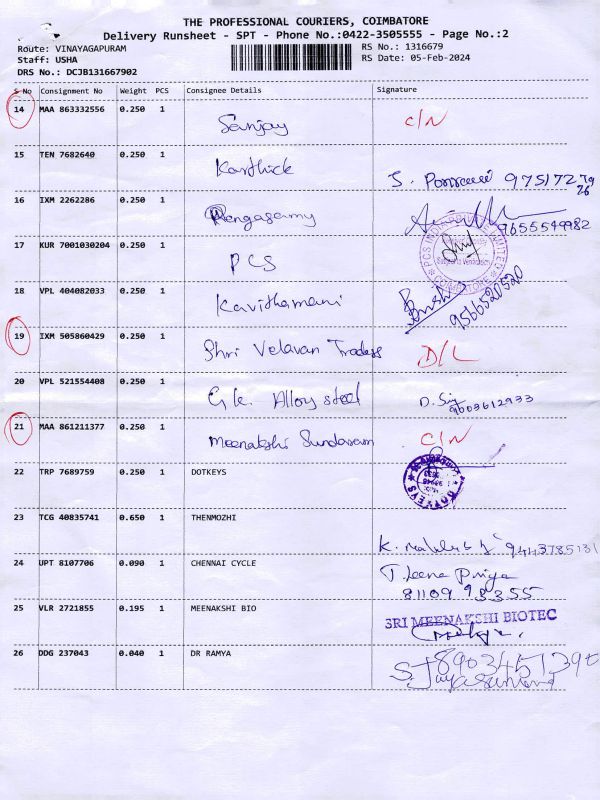 THE PROFESSIONAL COURIERS, COIMBATORE
Delivery Runsheet - SPT - Phone No.:0422-3505555 - Page No.:2
Route: VINAYAGAPURAM RS No.: 1316679
Staff: USHA RS Date: 05-Feb-2024
DRS No.: DCJB131667902
S No Consignment No Weight PCS Consignee Details Signature
14 MAA 863332556 0.250 1 Sanjay C/N
15 TEN 7682640 0.250 1 Karthick
S. 97517279
76
16 IXM 2262286 0.250 1 Rengasamy
9655549982
17 KUR 7001030204 0.250 1 PCS
COIMBATORE
18 VPL 404082033 0.250 1 Kavithamani
9566520520
19 IXM 505860429 0.250 1 Shri Velavan Traders D/L
20 VPL 521554408 0.250 1 G.K. Alloy steel
9003612933
21 MAA 861211377 0.250 1 Meenakshi Sundaram C/N
22 TRP 7689759 0.250 1 DOTKEYS
23 TCG 40835741 0.650 1 THENMOZHI
K. 9443785131
24 UPT 8107706 0.090 1 CHENNAI CYCLE T. Leena Priya
81109 93355
25 VLR 2721855 0.195 1 MEENAKSHI BIO SRI MEENAKSHI BIOTEC
26 DDG 237043 0.040 1 DR RAMYA 8903451390